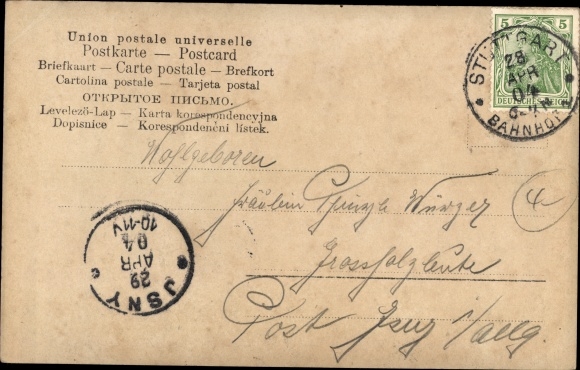 Union postale universelle
Postkarte — Postcard
Briefkaart — Carte postale — Brefkort
Cartolina postale — Tarjeta postal
ОТКРЫТОЕ ПИСЬМО.
Levelező-Lap — Karta korespondencyjna
Dopisnice — Korespondenční lístek.
5 5
DEUTSCHES REICH
STUTTGART
28
APR
04
BAHNHOF
Wohlgeboren
Fräulein Würger
4
Grossholzleute
Post Isny i/allg.
JSNY
29
APR
04
10-11V